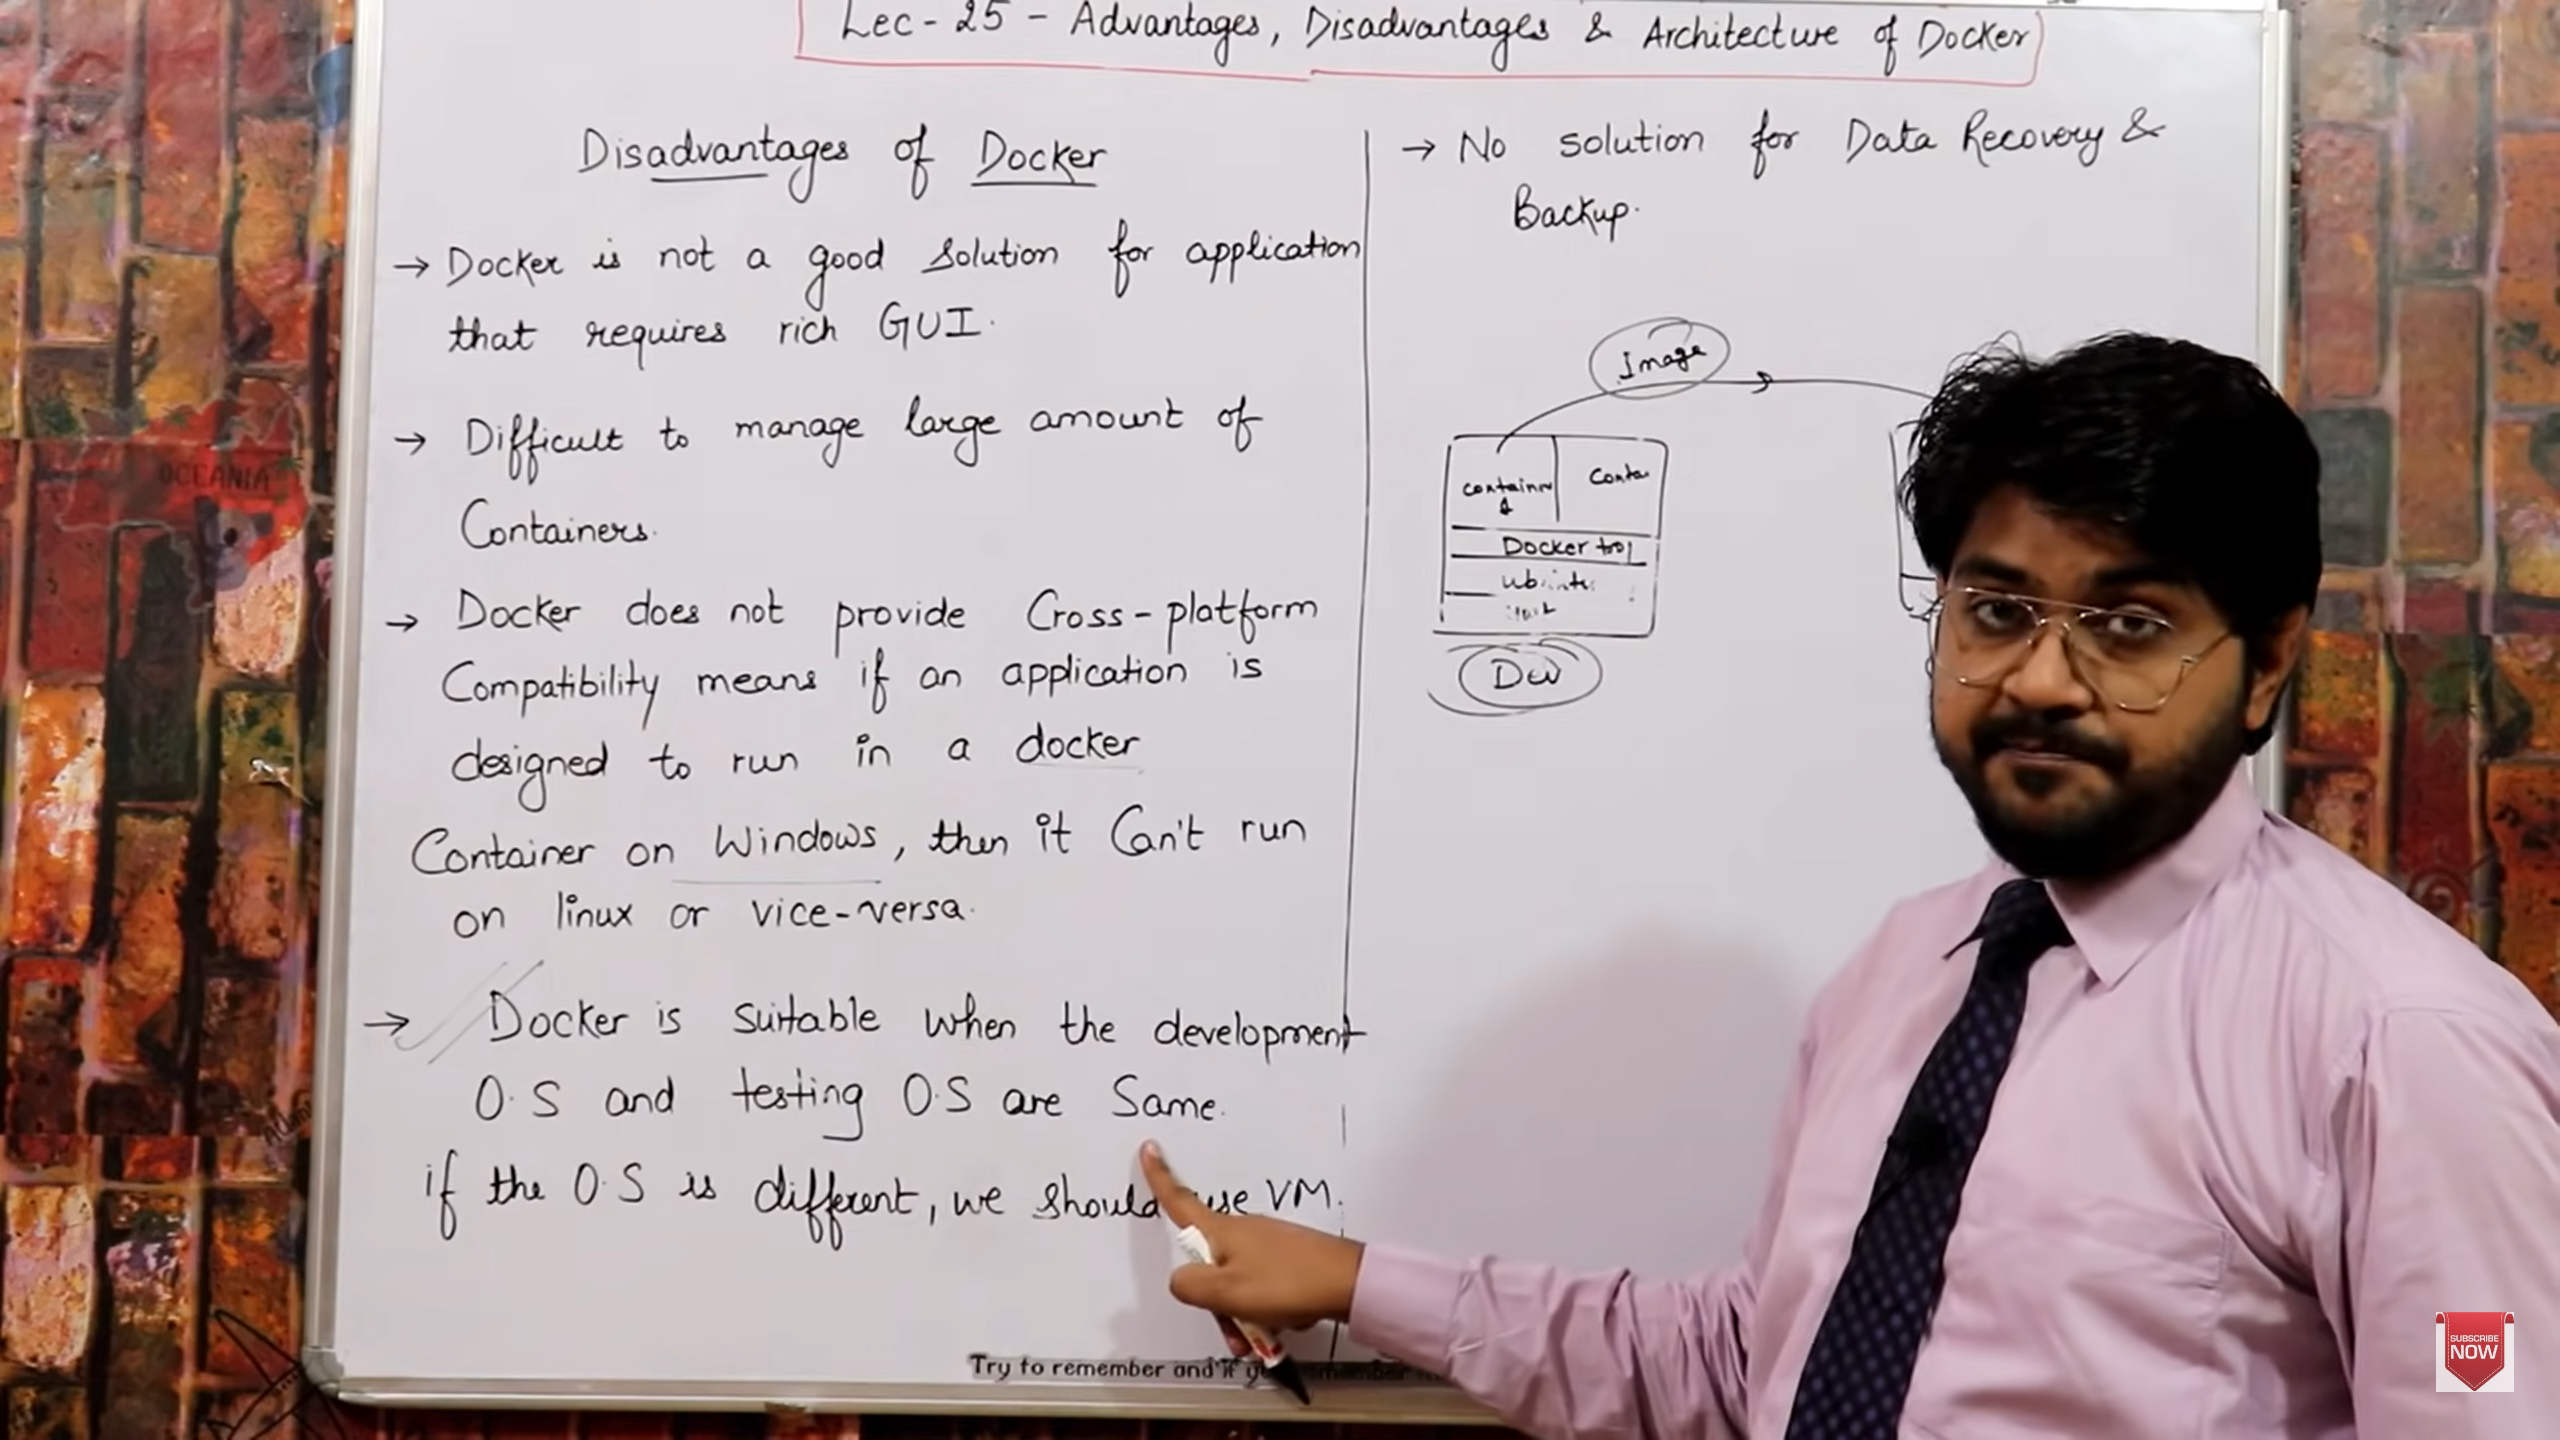 Lec - 25 - Advantages, Disadvantages & Architecture of Docker
Disadvantages of Docker
→ Docker is not a good solution for application
that requires rich GUI.
→ Difficult to manage large amount of
Containers.
→ Docker does not provide Cross-platform
Compatibility means if an application is
designed to run in a docker
Container on Windows, then it Can't run
on linux or vice-versa.
→ Docker is suitable when the development
O.S and testing O.S are Same.
if the O.S is different, we should use VM.
→ No solution for Data Recovery &
Backup.
Image
Container Conta
Docker tool
Ubuntu
Dev
Try to remember and if
OCEANIA
SUBSCRIBE
NOW